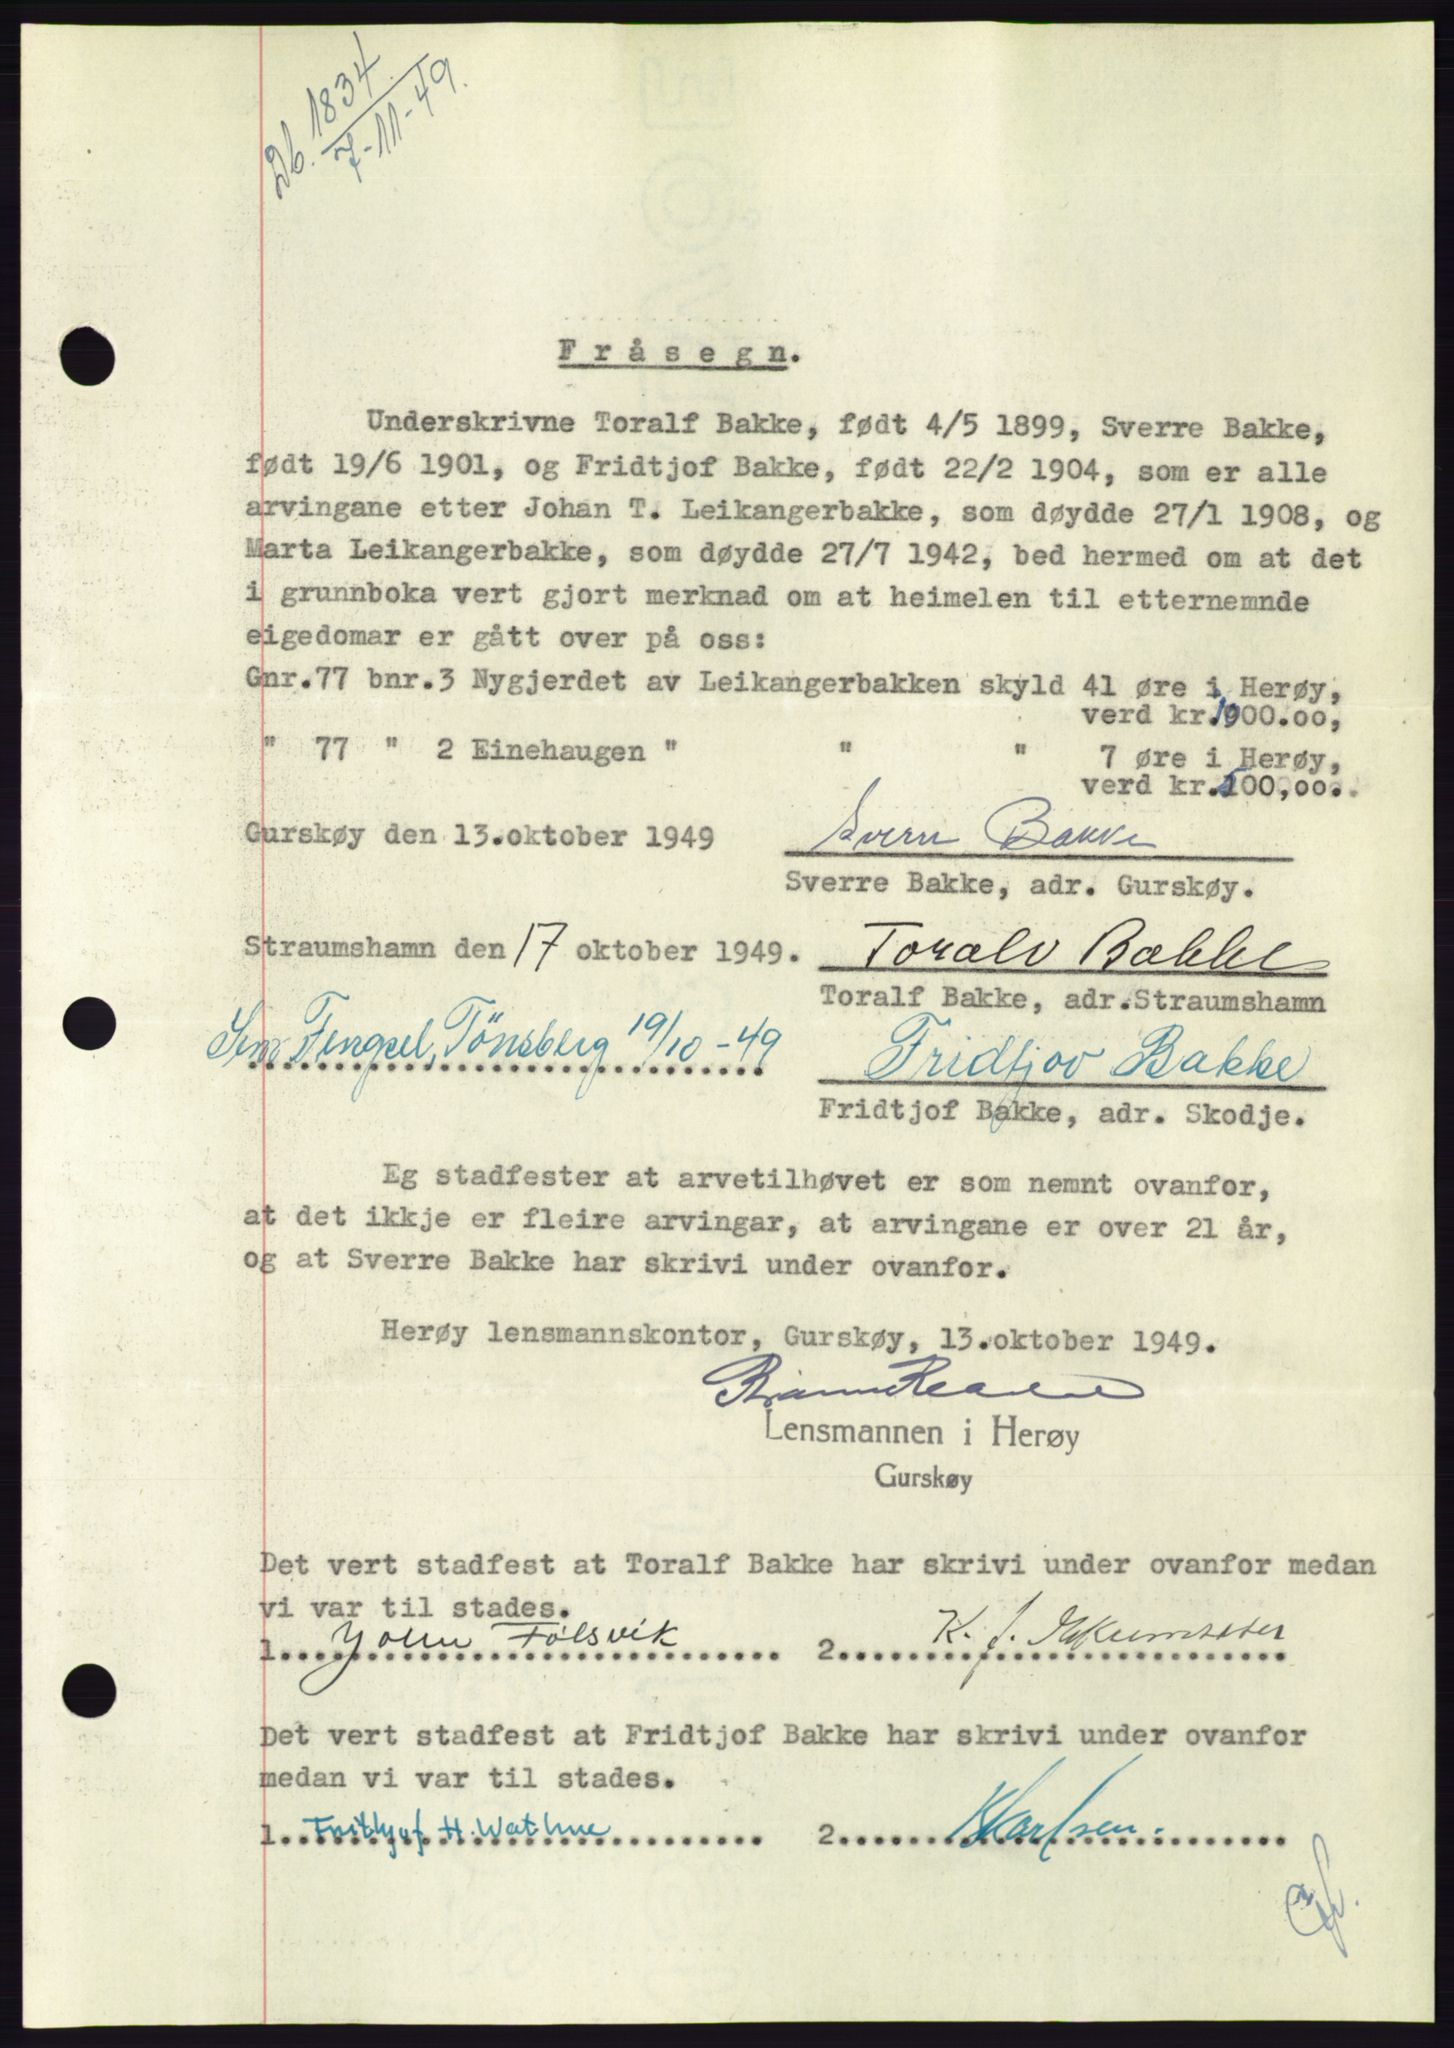 Db. 1834
7-11-49.
Fråsegn.
Underskrivne Toralf Bakke, født 4/5 1899, Sverre Bakke,
født 19/6 1901, og Fridtjof Bakke, født 22/2 1904, som er alle
arvingane etter Johan T. Leikangerbakke, som døydde 27/1 1908, og
Marta Leikangerbakke, som døydde 27/7 1942, bed hermed om at det
i grunnboka vert gjort merknad om at heimelen til etternemnde
eigedomar er gått over på oss:
Gnr.77 bnr.3 Nygjerdet av Leikangerbakken skyld 41 øre i Herøy,
verd kr.1000.oo,
" 77 " 2 Einehaugen " " " 7 øre i Herøy,
verd kr.500,oo..
Gurskøy den 13.oktober 1949 Sverre Bakke
Sverre Bakke, adr. Gurskøy.
Straumshamn den 17 oktober 1949. Toralv Bakke
Toralf Bakke, adr.Straumshamn
Sem Fengsel, Tönsberg 19/10-49 Fridtjov Bakke
Fridtjof Bakke, adr. Skodje.
Eg stadfester at arvetilhøvet er som nemnt ovanfor,
at det ikkje er fleire arvingar, at arvingane er over 21 år,
og at Sverre Bakke har skrivi under ovanfor.
Herøy lensmannskontor, Gurskøy, 13.oktober 1949.
Lensmannen i Herøy
Gurskøy
Det vert stadfest at Toralf Bakke har skrivi under ovanfor medan
vi var til stades.
1. John Fölsvik 2. K. J.
Det vert stadfest at Fridtjof Bakke har skrivi under ovanfor
medan vi var til stades.
1. Frithjof H. Wathne 2. Karlsen.